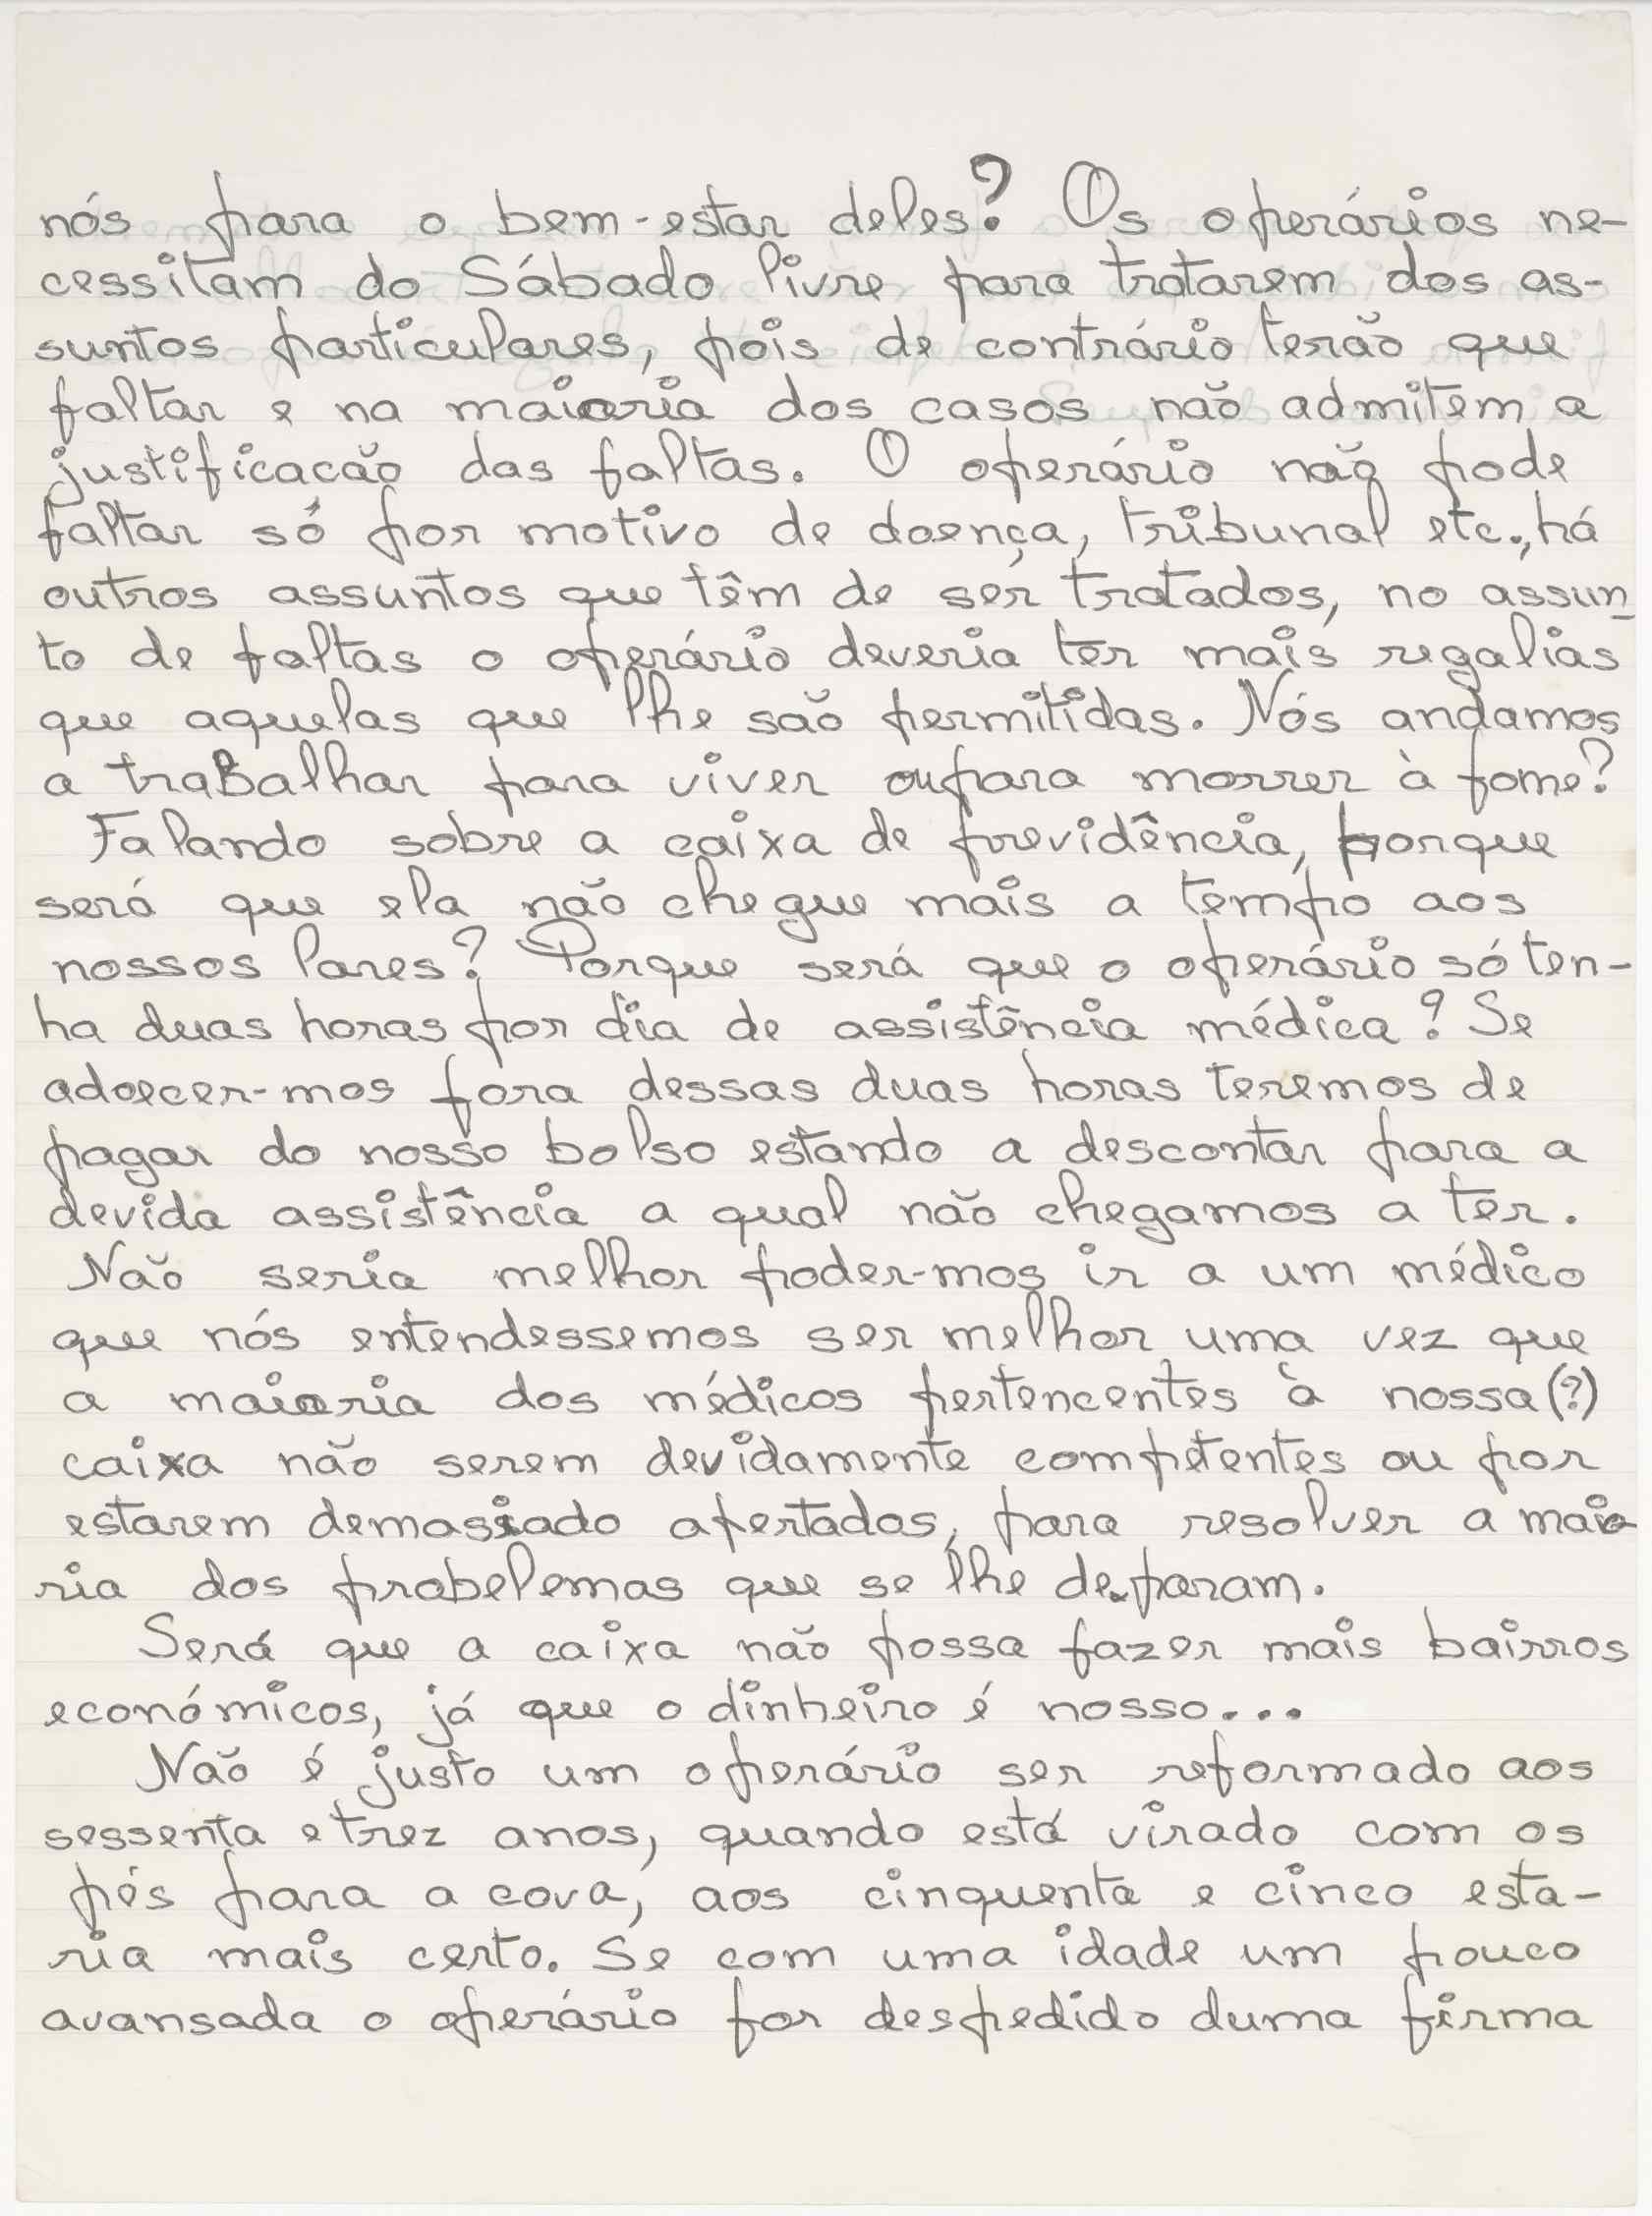 nós para o bem-estar deles? Os operários ne-
cessitam do Sábado livre para tratarem dos as-
suntos particulares, pois de contrário terão que
faltar e na maioria dos casos não admitem a
justificacão das faltas. O operário não pode
faltar só por motivo de doença, tribunal etc., há
outros assuntos que têm de ser tratados, no assun-
to de faltas o operário deveria ter mais regalias
que aquelas que lhe são permitidas. Nós andamos
a trabalhar para viver ou para morrer à fome?
Falando sobre a caixa de previdência, porque
será que ela não chegue mais a tempo aos
nossos lares? Porque será que o operário só ten-
ha duas horas por dia de assistência médica? Se
adoecer-mos fora dessas duas horas teremos de
pagar do nosso bolso estando a descontar para a
devida assistência a qual não chegamos a ter.
Não seria melhor poder-mos ir a um médico
que nós entendessemos ser melhor uma vez que
a maioria dos médicos pertencentes à nossa (?)
caixa não serem devidamente competentes ou por
estarem demasiado apertados, para resolver a maio
ria dos probelemas que se lhe deparam.
Será que a caixa não possa fazer mais bairros
económicos, já que o dinheiro é nosso...
Não é justo um operário ser reformado aos
sessenta e trez anos, quando está virado com os
pés para a cova, aos cinquenta e cinco esta-
ria mais certo. Se com uma idade um pouco
avansada o operário for despedido duma firma